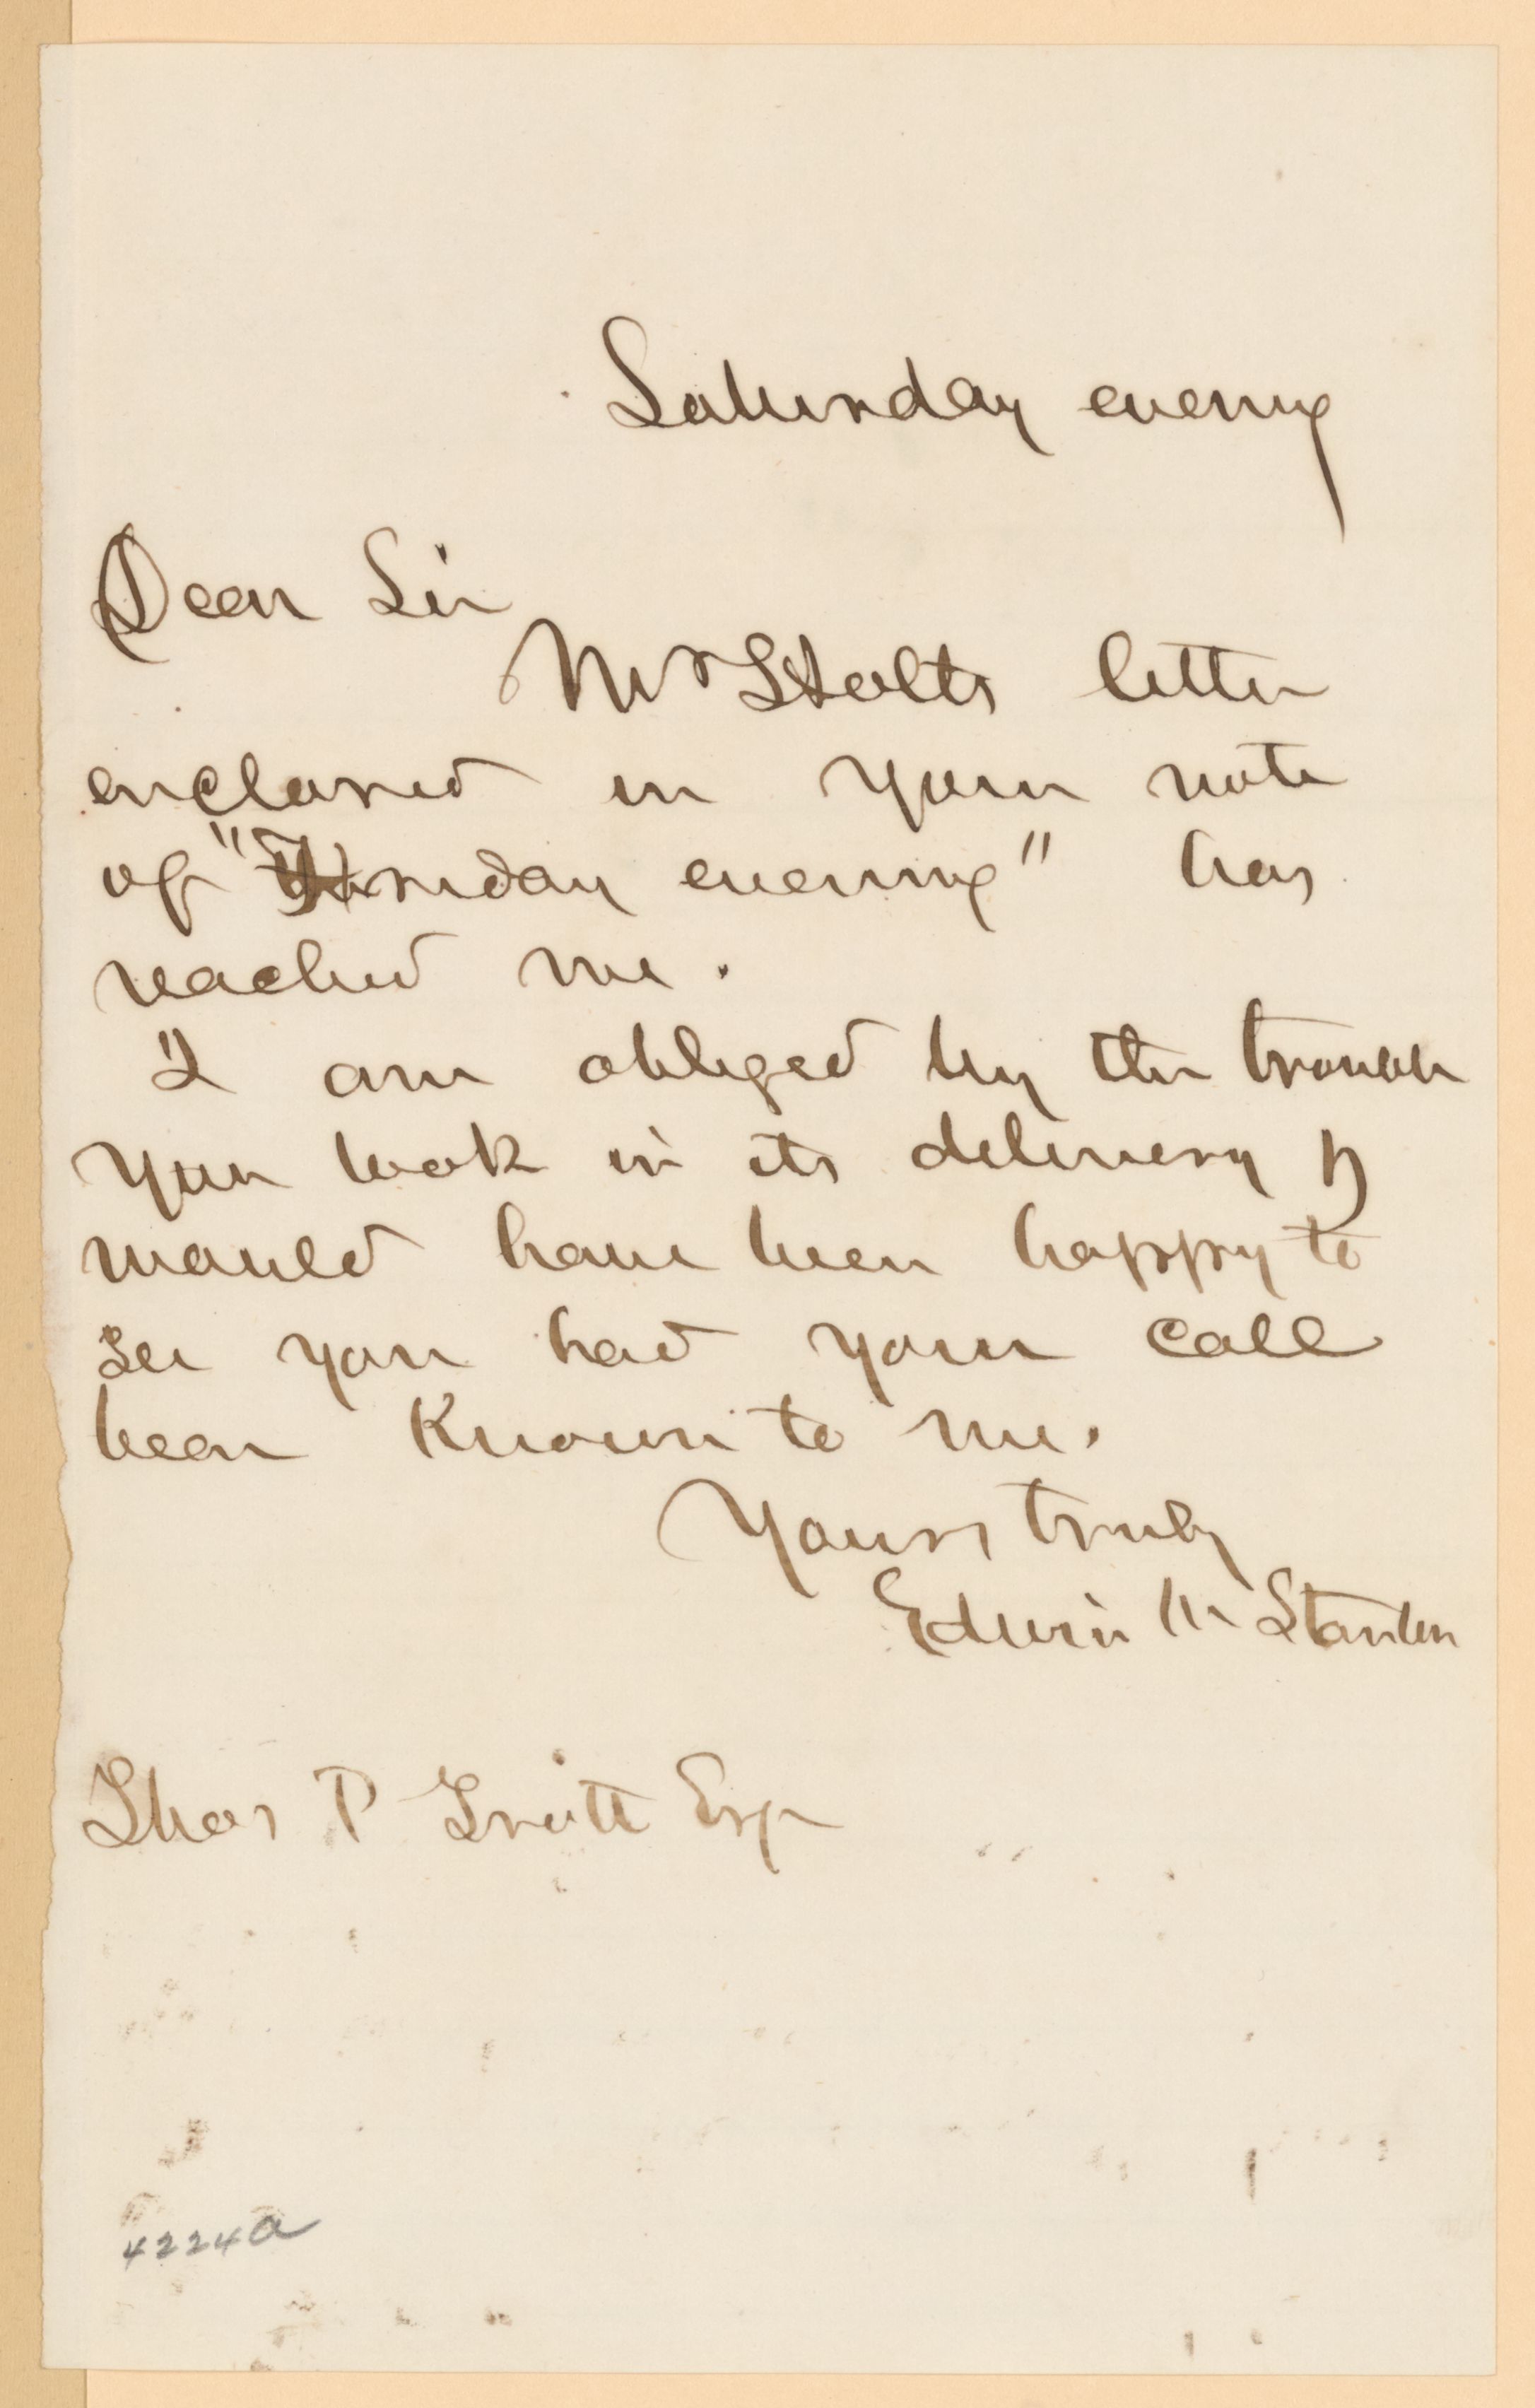 Saturday evening
Dear Sir
Mr Holts letter
enclosed in your note
of "Thursday evening" has
reached me.
I am obliged by the trouble
you took in its delivery &
would have been happy to
see you had your call
been known to me.
Yours truly
Edwin M Stanton
Thos P Trott Esq
4224a